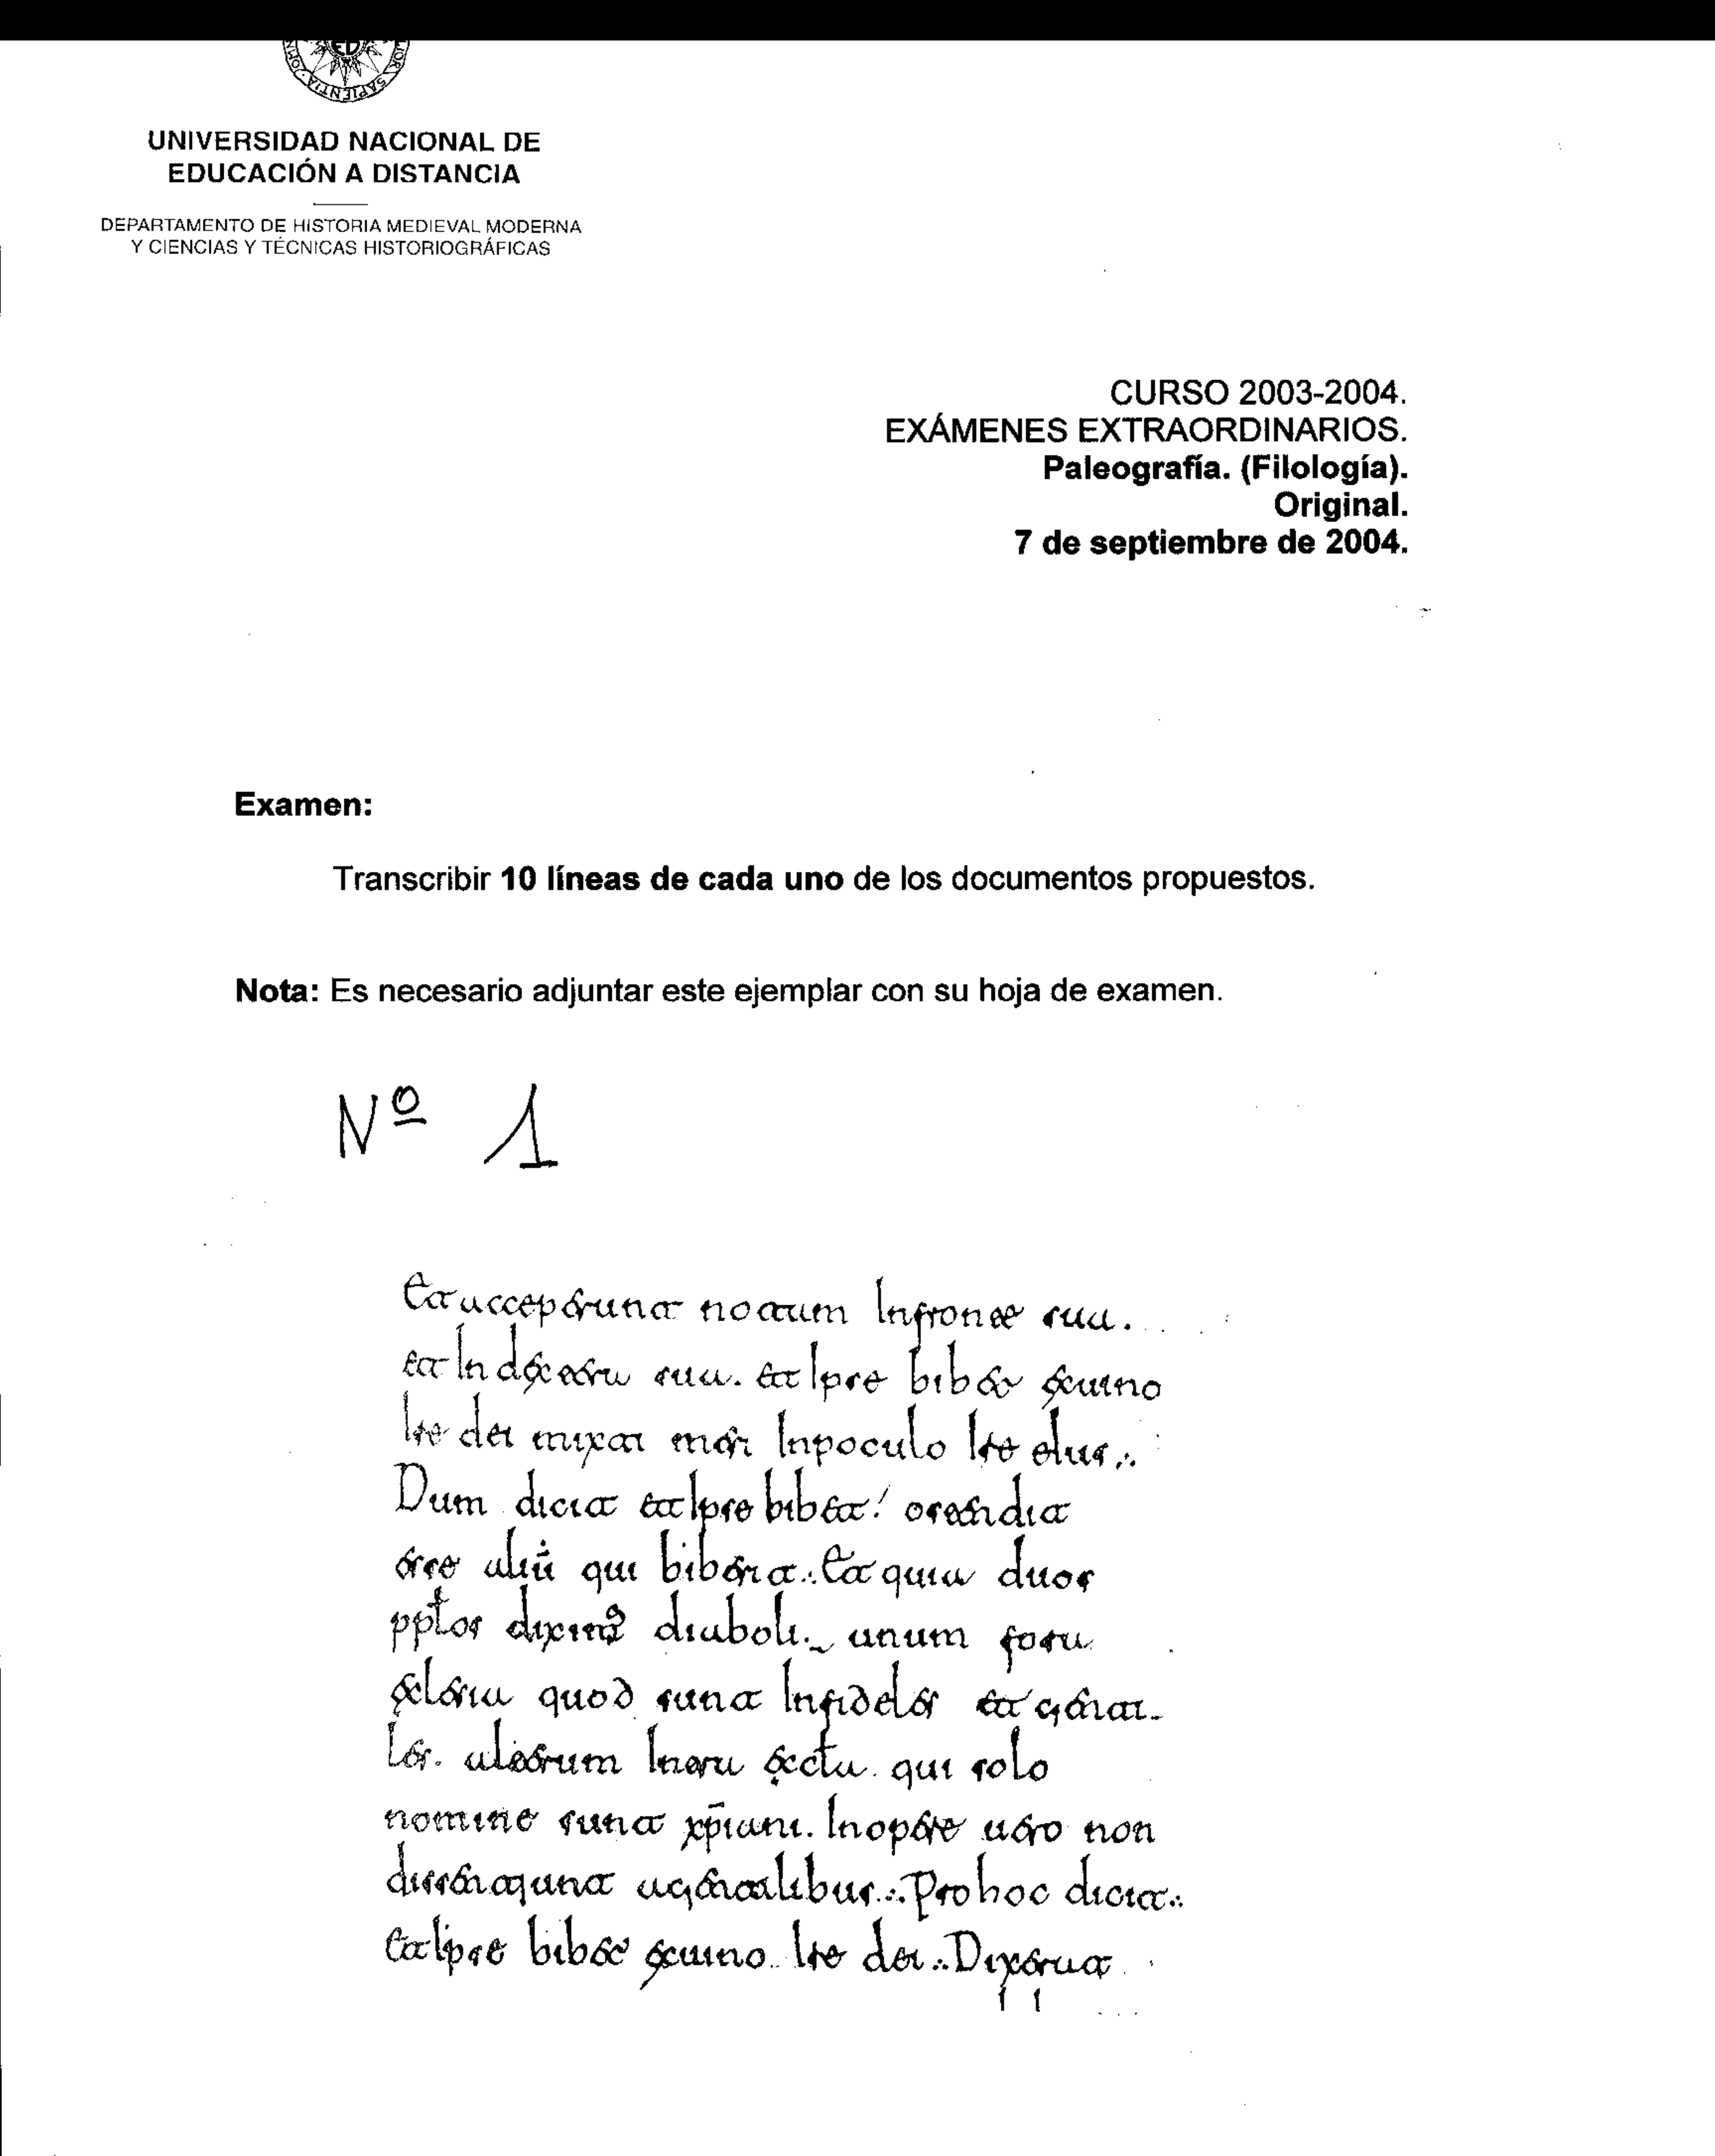 ED
SAPIENTIA
UNIVERSIDAD NACIONAL DE
EDUCACIÓN A DISTANCIA
DEPARTAMENTO DE HISTORIA MEDIEVAL MODERNA
Y CIENCIAS Y TÉCNICAS HISTORIOGRÁFICAS
CURSO 2003-2004.
EXÁMENES EXTRAORDINARIOS.
Paleografía. (Filología).
Original.
7 de septiembre de 2004.
Examen:
Transcribir 10 líneas de cada uno de los documentos propuestos.
Nota: Es necesario adjuntar este ejemplar con su hoja de examen.
Nº 1
Et acceperunt notam Infronte sua.
et In dextera sua. et Ipse bibet exuino
Ire dei mixti meri Inpoculo Ire eius.
Dum dicit et Ipse bibet! ostendit
esse aliū qui biberit. Et quia duos
pplos diximꝰ diaboli. unum fora
eclesia quod sunt Infideles et genti-
les. alterum Intra ecla qui solo
nomine sunt xp̄iani. Inopere uero non
dissentiunt agentilibus. Pro hoc dicit
Et Ipse bibet exuino Ire dei. Dixerat